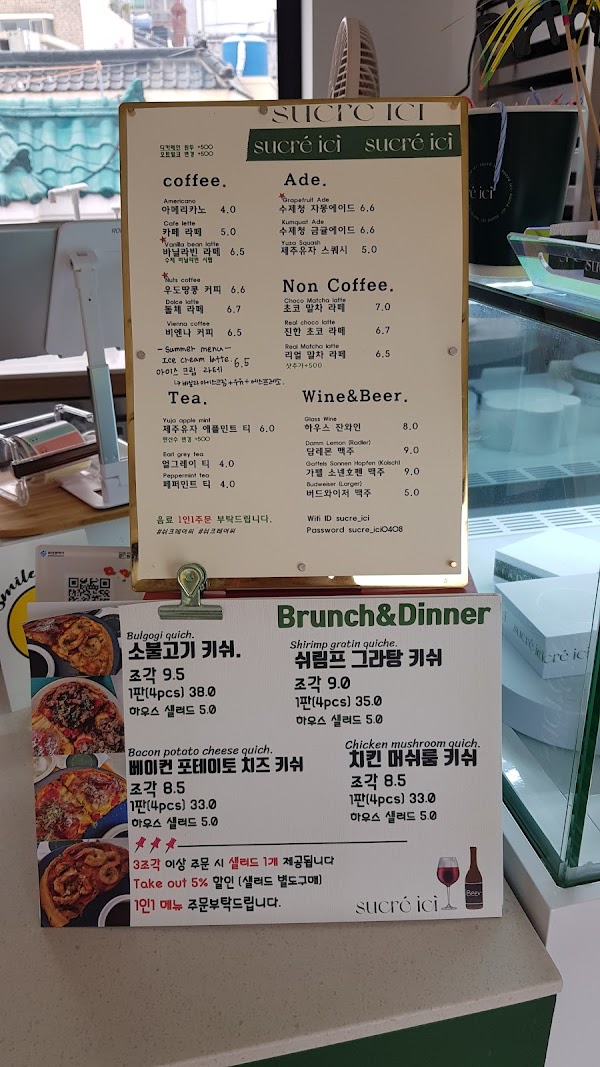 sucré ici
디카페인 원두 +500
오트밀크 변경 +500
sucré ici sucré ici
coffee.
Americano
아메리카노 4.0
Cafe latte
카페 라떼 5.0
Vanilla bean latte
바닐라빈 라떼 6.5
수제 바닐라빈 시럽
Nuts coffee
우도땅콩 커피 6.6
Dolce latte
돌체 라떼 6.7
Vienna coffee
비엔나 커피 6.5
- Summer menu -
Ice cream latte. 6.5
아이스 크림 라떼
Ade.
Grapefruit Ade
수제청 자몽에이드 6.6
Kumquat Ade
수제청 금귤에이드 6.6
Yuza Squash
제주유자 스쿼시 5.0
Non Coffee.
Choco Matcha latte
초코 말차 라떼 7.0
Real choco latte
진한 초코 라떼 6.7
Real Matcha latte
리얼 말차 라떼 6.5
샷추가+500
Tea.
Yuja apple mint
제주유자 애플민트 티 6.0
탄산수 변경 +500
Earl grey tea
얼그레이 티 4.0
Peppermint tea
페퍼민트 티 4.0
음료 1인1주문 부탁드립니다.
#쉬크레이씨 #쉬크레이씨
Wine&Beer.
Glass Wine
하우스 잔와인 8.0
Damm Lemon (Radler)
담레몬 맥주 9.0
Gaffels Sonnen Hopfen (Kolsch)
가펠 소넨호펜 맥주 9.0
Budweiser (Larger)
버드와이저 맥주 5.0
Wifi ID sucre_ici
Password sucre_ici0408
smile
Brunch&Dinner
Bulgogi quich.
소불고기 키쉬.
조각 9.5
1판(4pcs) 38.0
하우스 샐러드 5.0
Shirimp grotin quiche.
쉬림프 그라탕 키쉬
조각 9.0
1판(4pcs) 35.0
하우스 샐러드 5.0
Bacon potato cheese quich.
베이컨 포테이토 치즈 키쉬
조각 8.5
1판(4pcs) 33.0
하우스 샐러드 5.0
Chicken mushroom quich.
치킨 머쉬룸 키쉬
조각 8.5
1판(4pcs) 33.0
하우스 샐러드 5.0
3조각 이상 주문 시 샐러드 1개 제공됩니다
Take out 5% 할인 (샐러드 별도구매)
1인1 메뉴 주문부탁드립니다.
sucré ici
Beer